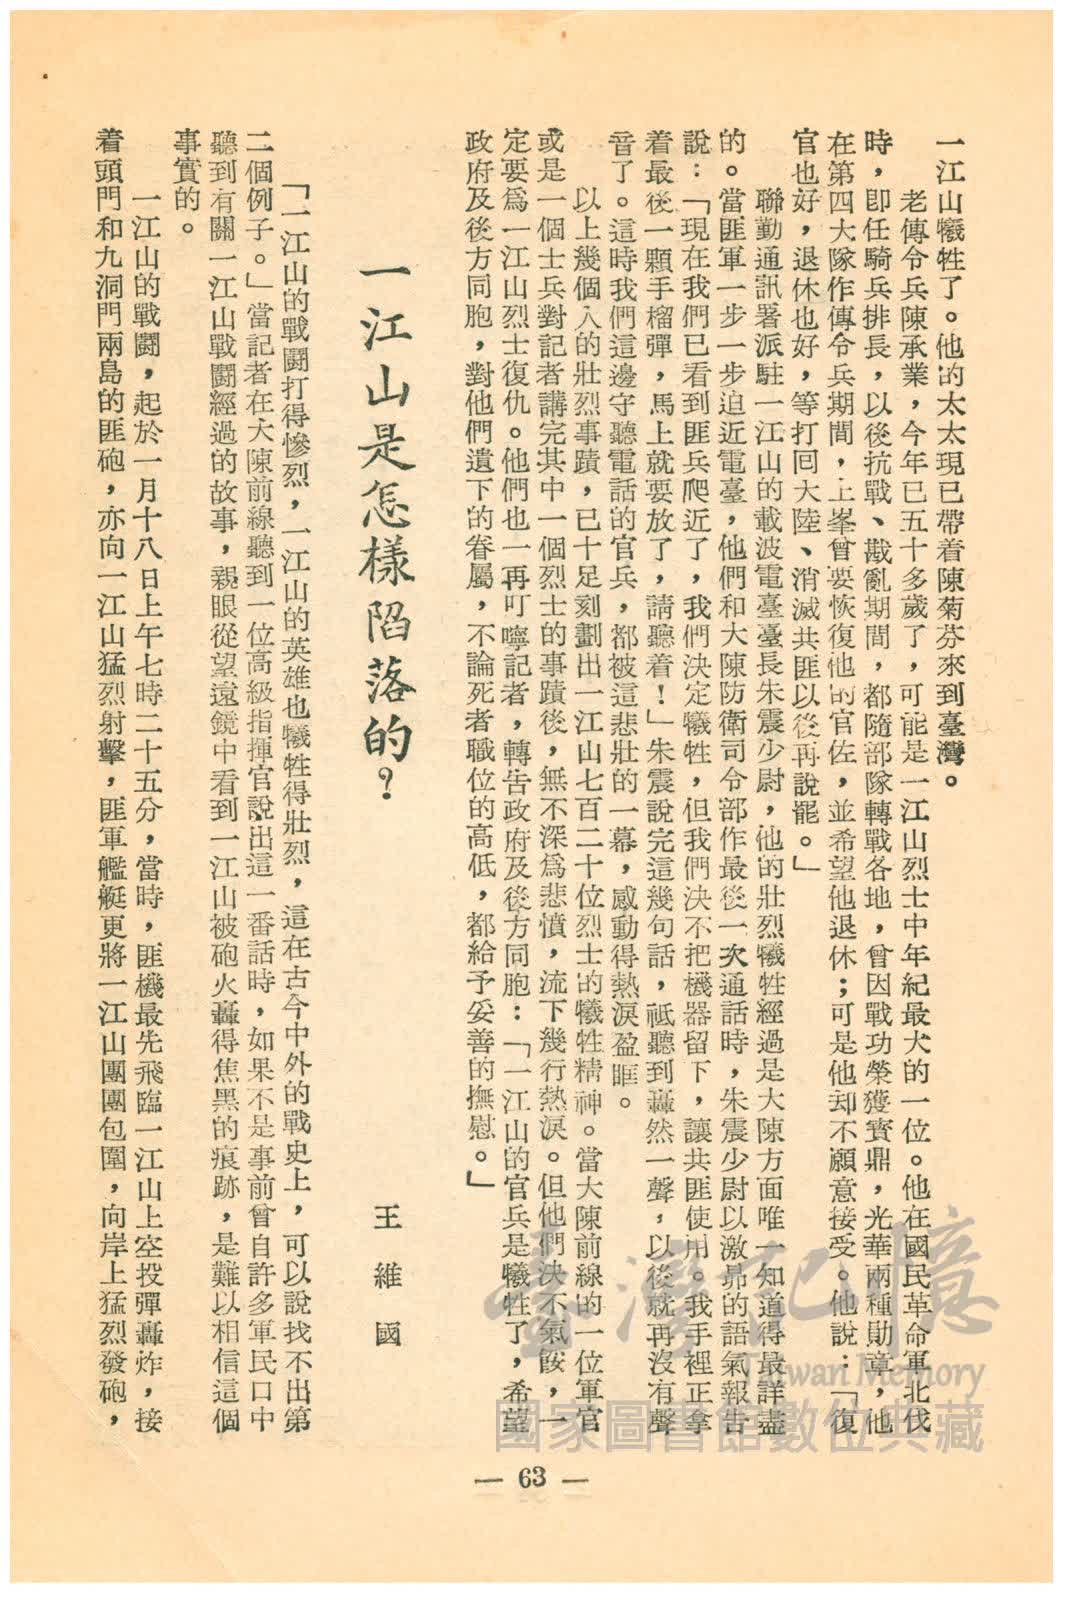 一江山犧牲了。他的太太現已帶着陳菊芬來到臺灣。
老傳令兵陳承業，今年已五十多歲了，可能是一江山烈士中年紀最大的一位。他在國民革命軍北伐
時，卽任騎兵排長，以後抗戰、戡亂期間，都隨部隊轉戰各地，曾因戰功榮獲寳鼎，光華兩種勛章，他
在第四大隊作傳令兵期間，上峯曾要恢復他的官佐，並希望他退休；可是他却不願意接受。他說：「復
官也好，退休也好，等打回大陸、消滅共匪以後再說罷。」
聯勤通訊署派駐一江山的載波電臺臺長朱震少尉，他的壯烈犧牲經過是大陳方面唯一知道得最詳盡
的。當匪軍一步一步迫近電臺，他們和大陳防衛司令部作最後一次通話時，朱震少尉以激昂的語氣報告
說：「現在我們已看到匪兵爬近了，我們決定犧牲，但我們決不把機器留下，讓共匪使用。我手裡正拿
着最後一顆手榴彈，馬上就要放了，請聽着！」朱震說完這幾句話，祗聽到轟然一聲，以後就再沒有聲
音了。這時我們這邊守聽電話的官兵，都被這悲壯的一幕，感動得熱淚盈眶。
以上幾個人的壯烈事蹟，已十足刻劃出一江山七百二十位烈士的犧牲精神。當大陳前線的一位軍官
或是一個士兵對記者講完其中一個烈士的事蹟後，無不深爲悲憤，流下幾行熱淚。但他們決不氣餒，一
定要爲一江山烈士復仇。他們也一再叮嚀記者，轉告政府及後方同胞：「一江山的官兵是犧牲了，希望
政府及後方同胞，對他們遺下的眷屬，不論死者職位的高低，都給予妥善的撫慰。」
一江山是怎樣陷落的？
王維國
「一江山的戰鬪打得慘烈，一江山的英雄也犧牲得壯烈，這在古今中外的戰史上，可以說找不出第
二個例子。」當記者在大陳前線聽到一位高級指揮官說出這一番話時，如果不是事前曾自許多軍民口中
聽到有關一江山戰鬪經過的故事，親眼從望遠鏡中看到一江山被砲火轟得焦黑的痕跡，是難以相信這個
事實的。
一江山的戰鬪，起於一月十八日上午七時二十五分，當時，匪機最先飛臨一江山上空投彈轟炸，接
着頭門和九洞門兩島的匪砲，亦向一江山猛烈射擊，匪軍艦艇更將一江山團團包圍，向岸上猛烈發砲，
— 63 —
臺灣記憶
Taiwan Memory
國家圖書館數位典藏